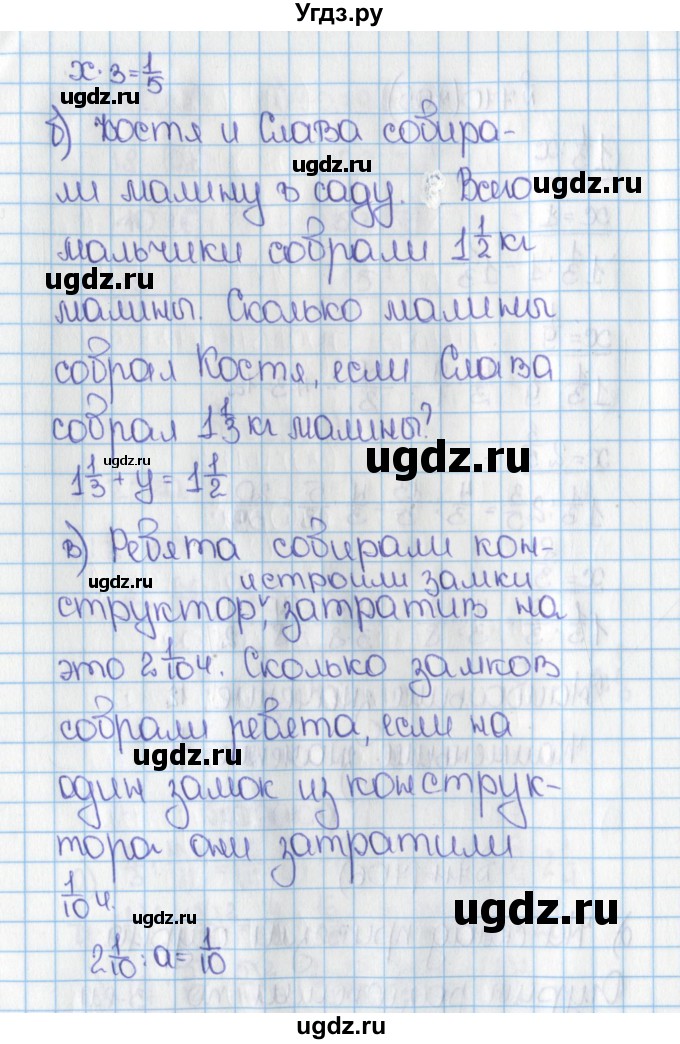 Угдз.ру
x · 3 = 1/5
ugdz.ru
б) Костя и Слава собира-
ugdz.ru
ли малину в саду. Всего
ugdz.ru
мальчики собрали 1 1/2 кг
ugdz.ru
малины. Сколько малины
собрал Костя, если Слава
собрал 1 1/3 кг малины?
ugdz.ru
ugdz.ru
1 1/3 + y = 1 1/2
в) Ребята собирали кон-
ugdz.ru
и строили замки
структор, затратив на
это 2 1/10 ч. Сколько замков
собрали ребята, если на
ugdz.ru
один замок из конструк-
тора они затратили
1/10 ч.
ugdz.ru
ugdz.ru
2 1/10 : a = 1/10
ugdz.ru